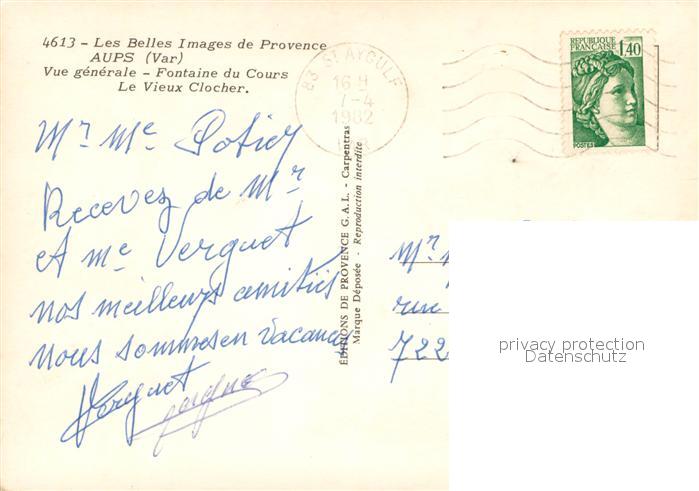 4613 - Les Belles Images de Provence
AUPS (Var)
Vue générale - Fontaine du Cours
Le Vieux Clocher.
83 ST AYGULF
16 H
7-4
1982
VAR
REPUBLIQUE
FRANÇAISE
1,40
POSTES
Mr Me Potier
Recevez de Mr
et me Verguet
nos meilleurs amitiés
nous sommes en vacances
Verguet
ÉDITIONS DE PROVENCE G.A.L. - Carpentras
Marque Déposée - Reproduction interdite
Mr
rue
722
privacy protection
Datenschutz